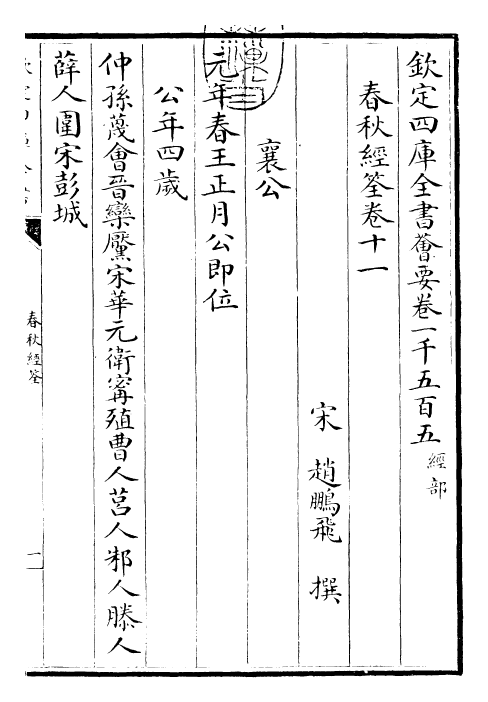 欽定四庫全書薈要卷一千五百五 經部
春秋經筌卷十一
宋 趙鵬飛 撰
襄公
元年春王正月公即位
公年四歲
仲孫蔑會晉欒黶宋華元衛甯殖曹人莒人邾人滕人
薛人圍宋彭城
春秋經筌
一